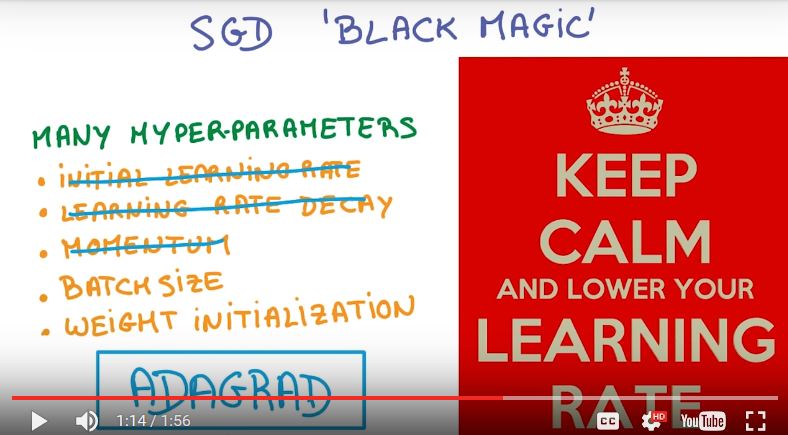 SGD 'BLACK MAGIC'
MANY HYPER-PARAMETERS
• INITIAL LEARNING RATE
• LEARNING RATE DECAY
• MOMENTUM
• BATCH SIZE
• WEIGHT INITIALIZATION
ADAGRAD
KEEP
CALM
AND LOWER YOUR
LEARNING
RATE
1:14 / 1:56
CC
HD
YouTube